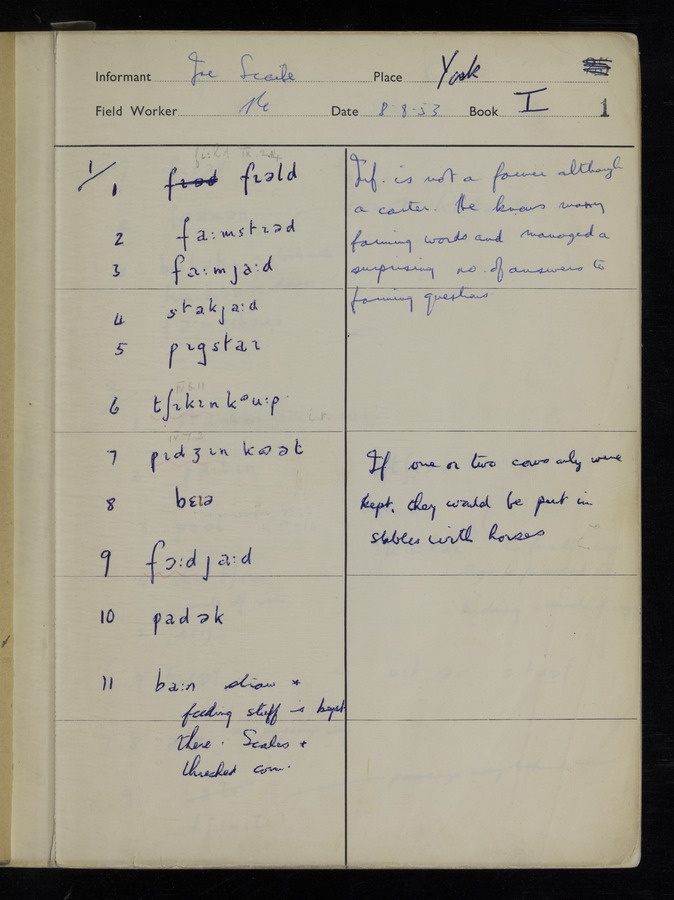 Informant Joe Place York
Field Worker Date 8-8-53 Book I 1
I/1 fɪəld
2 fa:mstɪəd
3 fa:mja:d
4 stakja:d
5 pɪgstaɪ
IV.5.11
6 tʃɪkɪn kᵊu:p
7 pɪdʒɪn kɒət
8 bɛɪə
9 fɔ:dja:d
10 padək
11 ba:n straw +
feeding stuff is kept
there. Scales +
threshed corn.
Inf. is not a farmer although
a carter. He knows many
farming words and managed a
surprising no. of answers to
farming questions
If one or two cows only were
kept, they would be put in
stables with horses